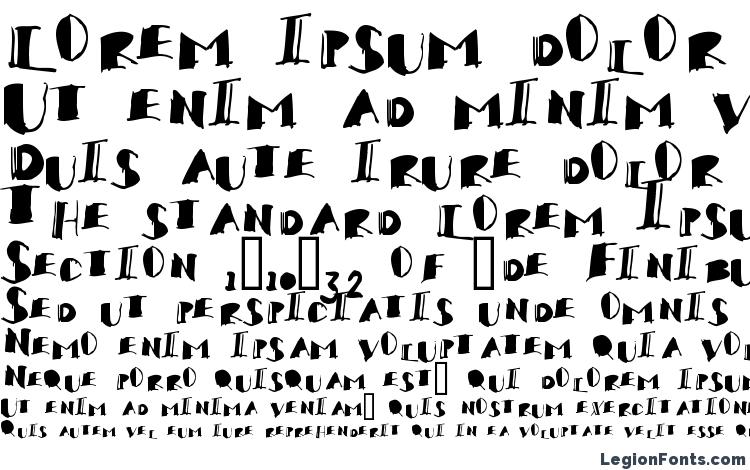 Lorem Ipsum dolor
Ut enim ad minim v
Duis aute irure dolor
The standard Lorem Ipsu
Section 1 10 32 of de Finibu
Sed ut perspiciatis unde omnis
Nemo enim ipsam voluptatem quia vol
Neque porro quisquam est qui dolorem ipsum
Ut enim ad minima veniam quis nostrum exercitatione
Quis autem vel eum iure reprehenderit qui in ea voluptate velit esse qu
LegionFonts.com